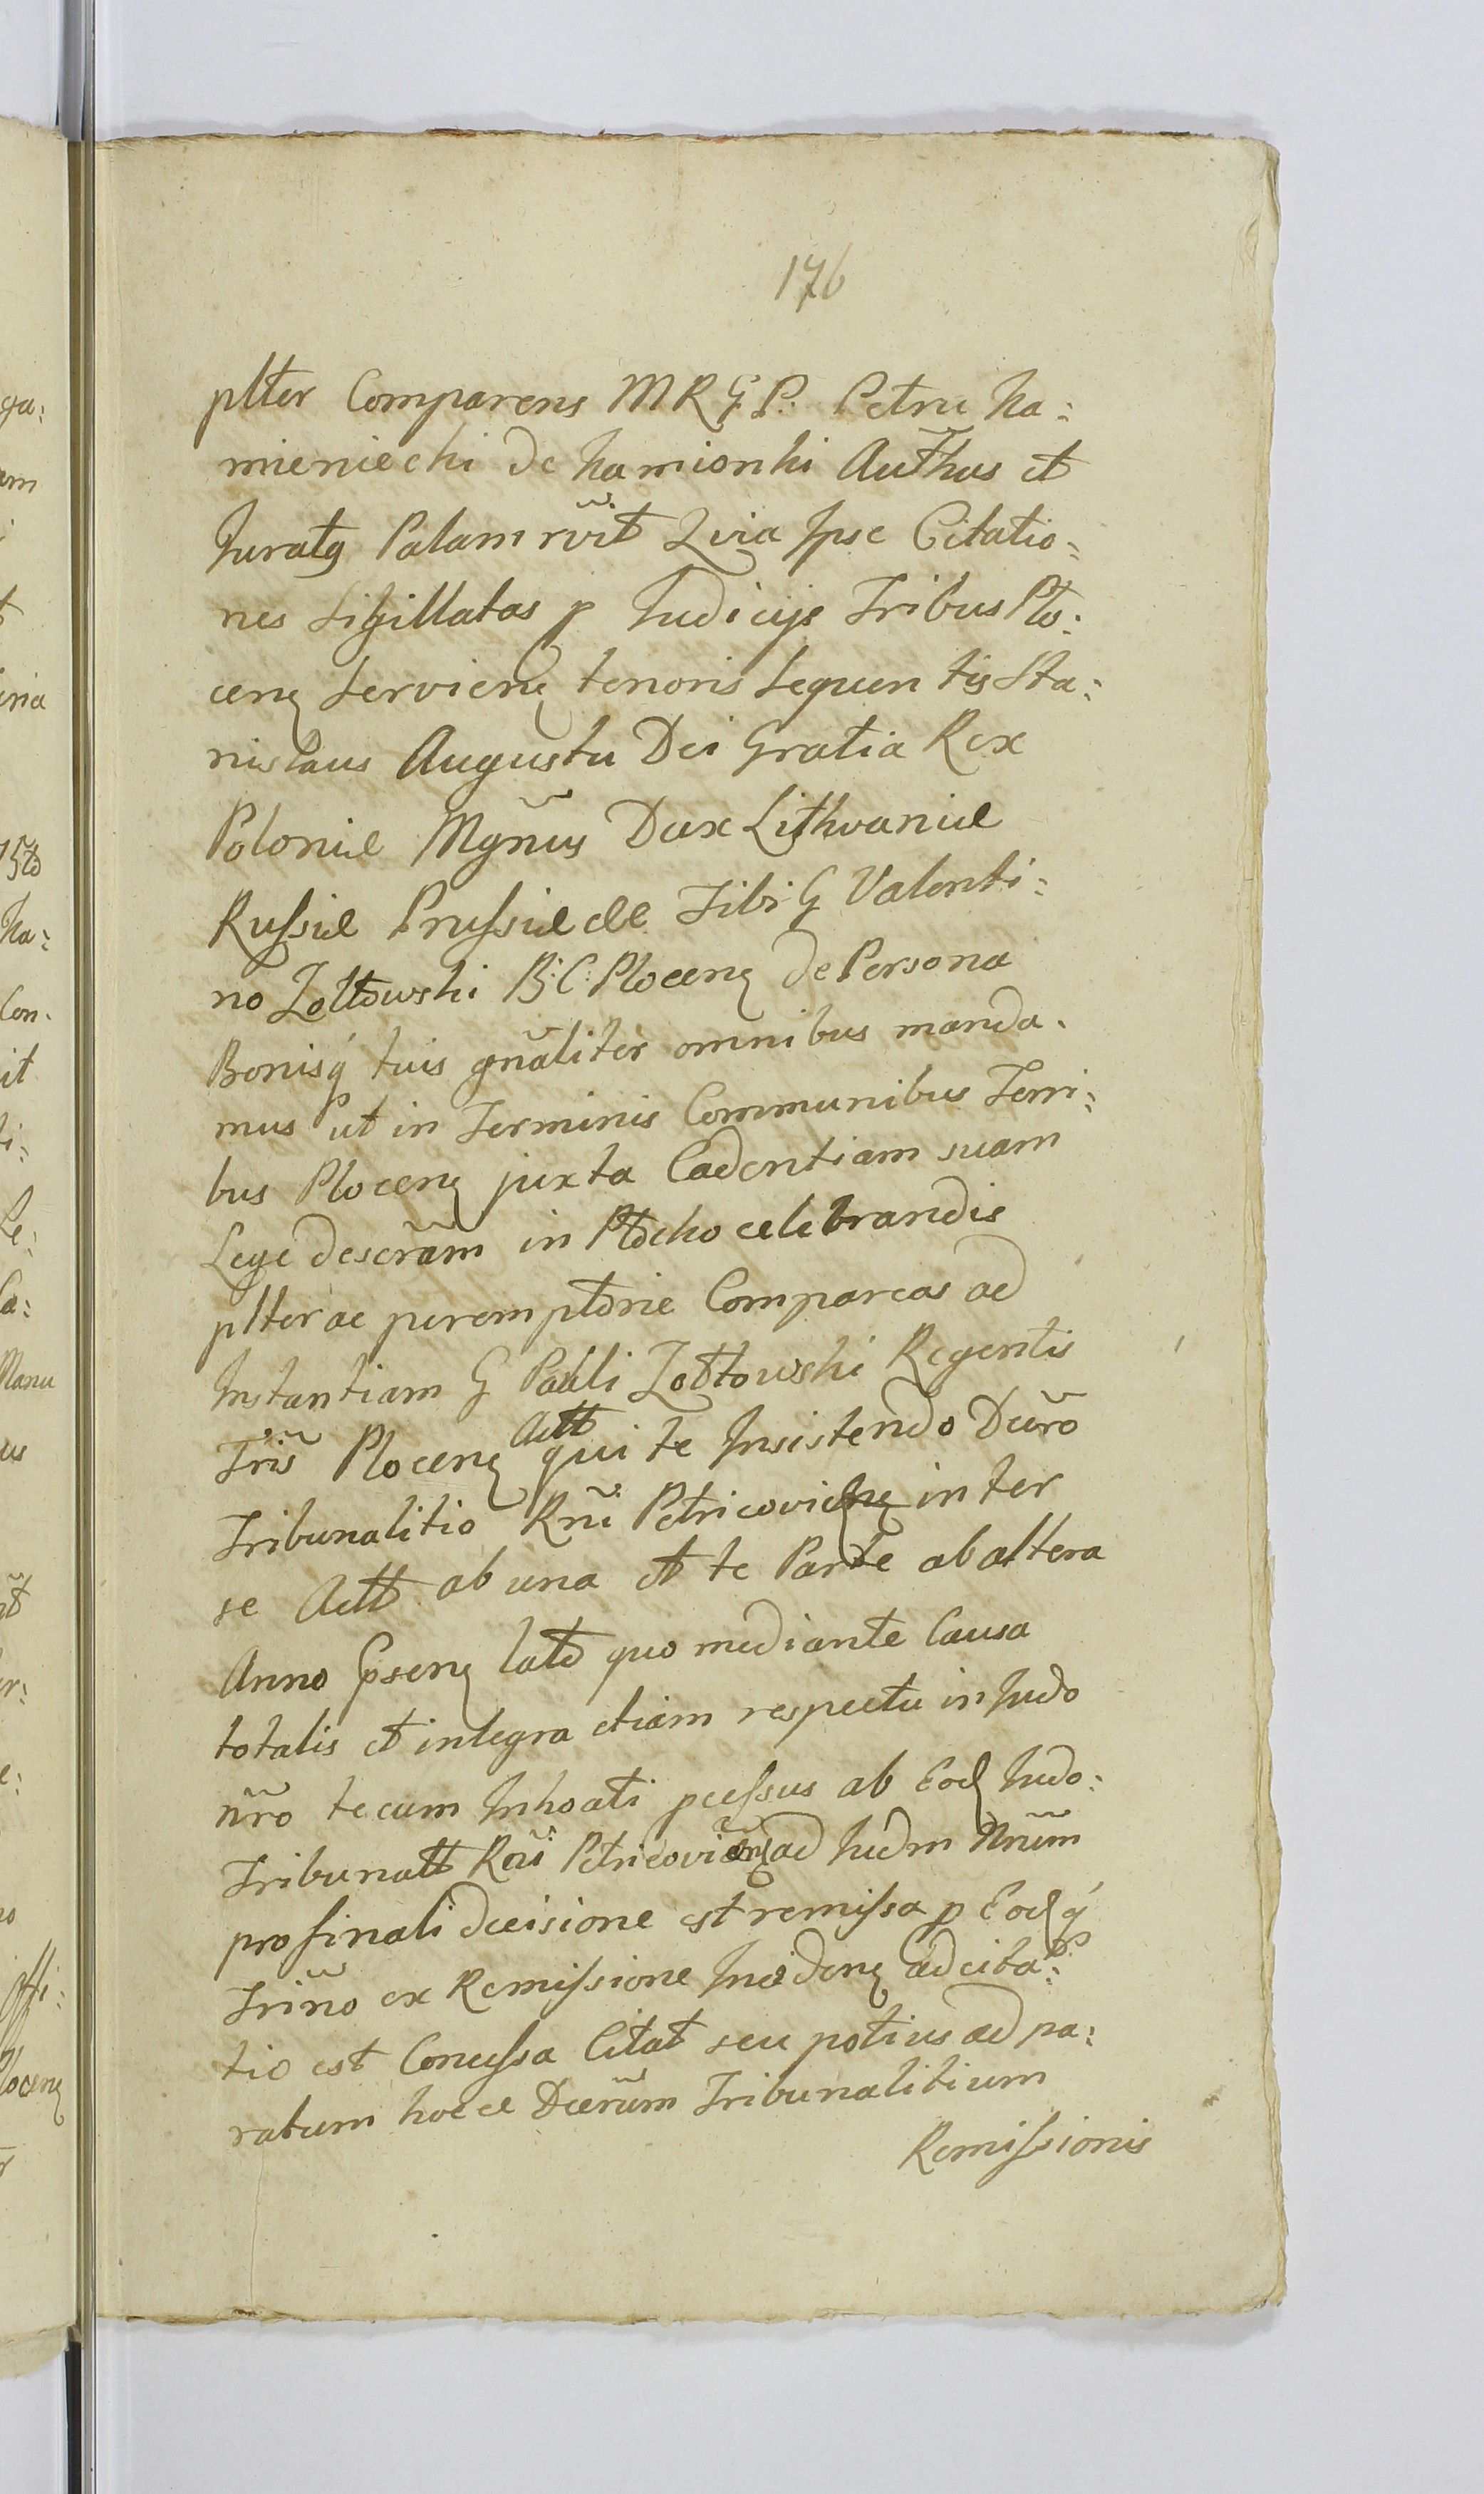 176
plter Comparens M R G P: Petru Ka:
mieniecki de Kamionki Auth̃us et
Juratq Palam rṽit Quia Ipse Citatio:
nes Sigillatas p Judicijs Tribus Plo:
cenȩ Servienȩ tenoris sequen tis Sta:
nislaus Augustu Dei Gratia Rex
Poloniæ Mgñus Dux Lithvaniæ
Rußiæ Prußiæ &c Tibi G Valenti:
no Zołtowski B: C: Plocenȩ de Persona
Bonisq́ tuis gñaliter omnibus manda.
mus ut in Terminis Communibus Terri:
bus Plocenȩ juxta Cadentiam suam
Lege descrãm in Płocko celebrandis
plter ac peremptorie Compareas ad
Instantiam G Pauli Zołtowski Regentis
Tris̃ Plocenȩ Actt qui te Insistendo Dcr̃o
Tribunalitio Rñi Petricovienȩ inter
se Actt ab una et te Parte ab altera
Anno Epsenȩ lato quo mediante Causa
totalis et integra etiam respectu in Judo
nr̃o tecum Inhoati pceßus ab Eod Judo:
Tribunatt Rñi Petricovienȩ ad Judm Nrũm
pro finali decisione est remißa p Eodq́
Trino ex Remißione Incidenȩ adcita:
tio est Conceßa Citat seu potius ad pa:
ratum hocce Dcrũm Tribunalitium
Remißionis
ga:
am
15to
Ka:
Con.
it
Le:
Ca:
Manu
us
Plocenȩ